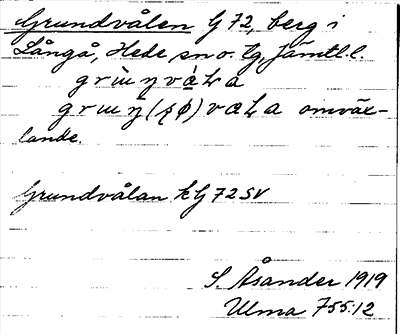 Grundvålen G 72, berg i
Långå, Hede sn o. tg, Jämtl. l.
omväx-
lande.
Grundvålan k G 72 SV
S. Åsander 1919
Ulma 755:12